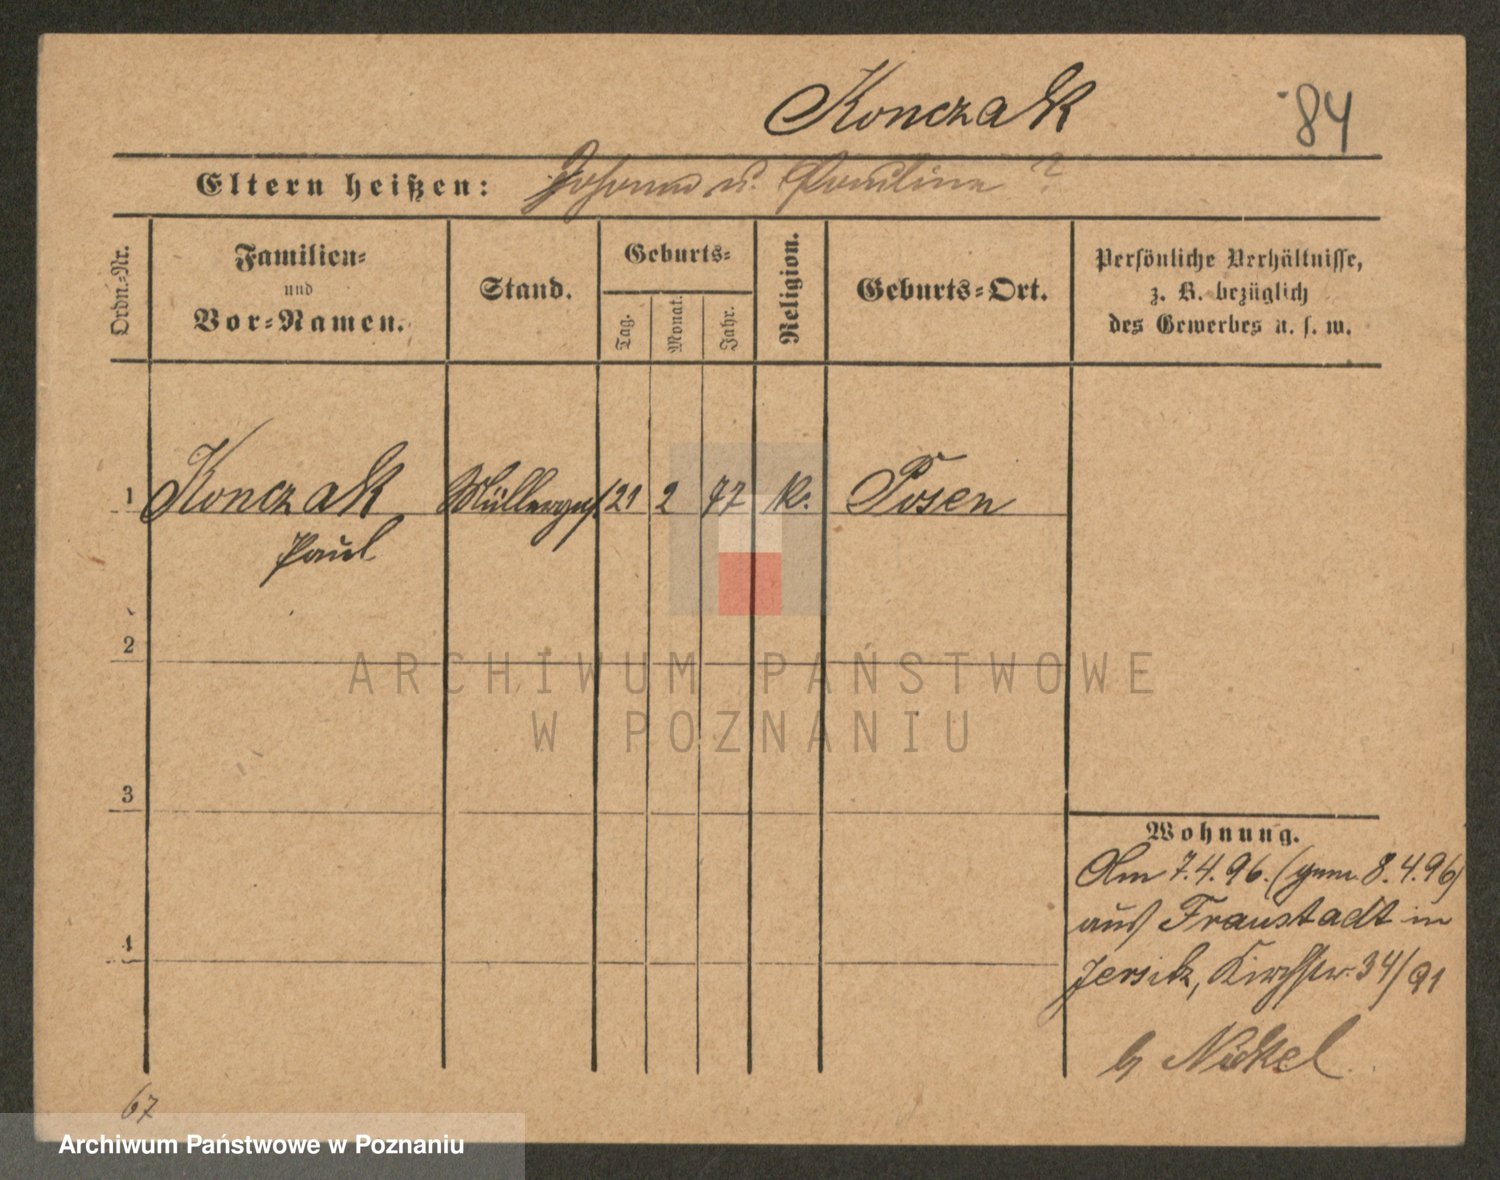 Konczak
84
Eltern heißen: Johann u. Paulina ?
Ordn.-Nr.
Familien-
und
Vor-Namen.
Stand.
Geburts-
Tag.
Monat.
Jahr.
Religion.
Geburts-Ort.
Persönliche Verhältnisse,
z. B. bezüglich
des Gewerbes u. s. w.
1 Konczak Müllerges. 21 2 77 k. Posen
Paul
2
3
4
ARCHIWUM PAŃSTWOWE
W POZNANIU
Wohnung.
Am 7.4.96. (gem. 8.4.96)
aus Fraustadt in
Jersitz, Kirchstr. 34/91
b. Nickel
67
Archiwum Państwowe w Poznaniu